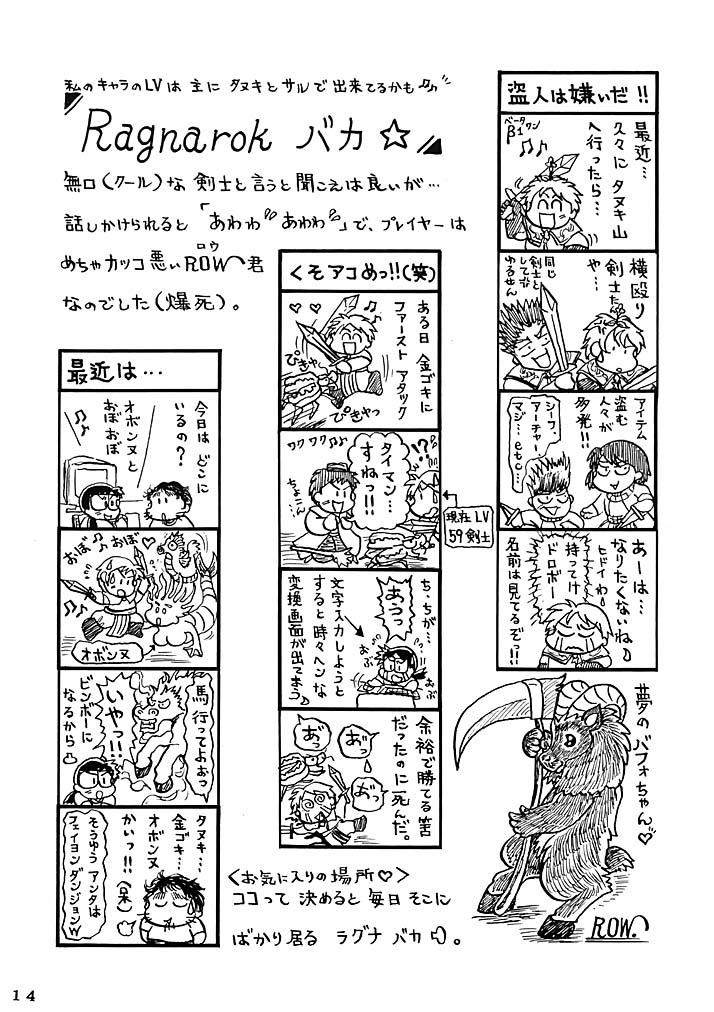 私のキャラのLVは主にタヌキとサルで出来てるかも♪♪"
Ragnarok バカ☆
無口(クール)な剣士と言うと聞こえは良いが…
話しかけられると「あわわ あわわ」で、プレイヤーは
めちゃカッコ悪いROW君
ロウ
なのでした(爆死)。
盗人は嫌いだ!!
ベータワン
β1
最近…
久々にタヌキ山
へ行ったら…
横殴り
剣士たちや…
同じ
剣士と
して
ゆるせん
アイテム
盗む
人々が
多発!!
シーフ、
アーチャー、
マジ…etc…
あーは…
なりたくないね♪
ヒドイわ
持ってけ
ドロボー
名前は見てるぞっ!!
くそアコめっ!!(笑)
ある日 金ゴキに
ファーストアタック
ぴきゃー
ぴきゃっ
!?
タイマン…
すねっ!!
ワクワク♪♪
ちょこん
現在LV
59剣士
ち、ちが…
あうっ
おぶおぶ
文字入力しようと
すると時々ヘンな
変換画面が出てまう♪
余裕で勝てる筈
だったのに死んだ。
おっ
おっ
おっ
最近は…
今日はどこに
いるの?
オボンヌと
おぼおぼ
おぼおぼ♪
オボンヌ
馬行ってよぉっ
いやっ!!
ビンボーに
なるから
タヌキ…
金ゴキ…
オボンヌ
かいっ!!(呆)
そうゆうアンタは
フェイヨンダンジョンw
夢のバフォちゃん♡
ROW.
<お気に入りの場所♡>
ココって決めると毎日そこに
ばかり居る ラグナバカ。
14